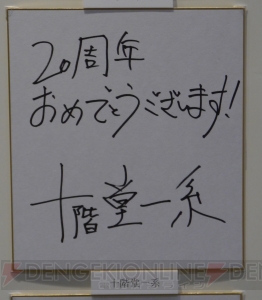 20周年
おめでとうございます!
十階堂一系
十階堂一系
DENGEKIONLINE